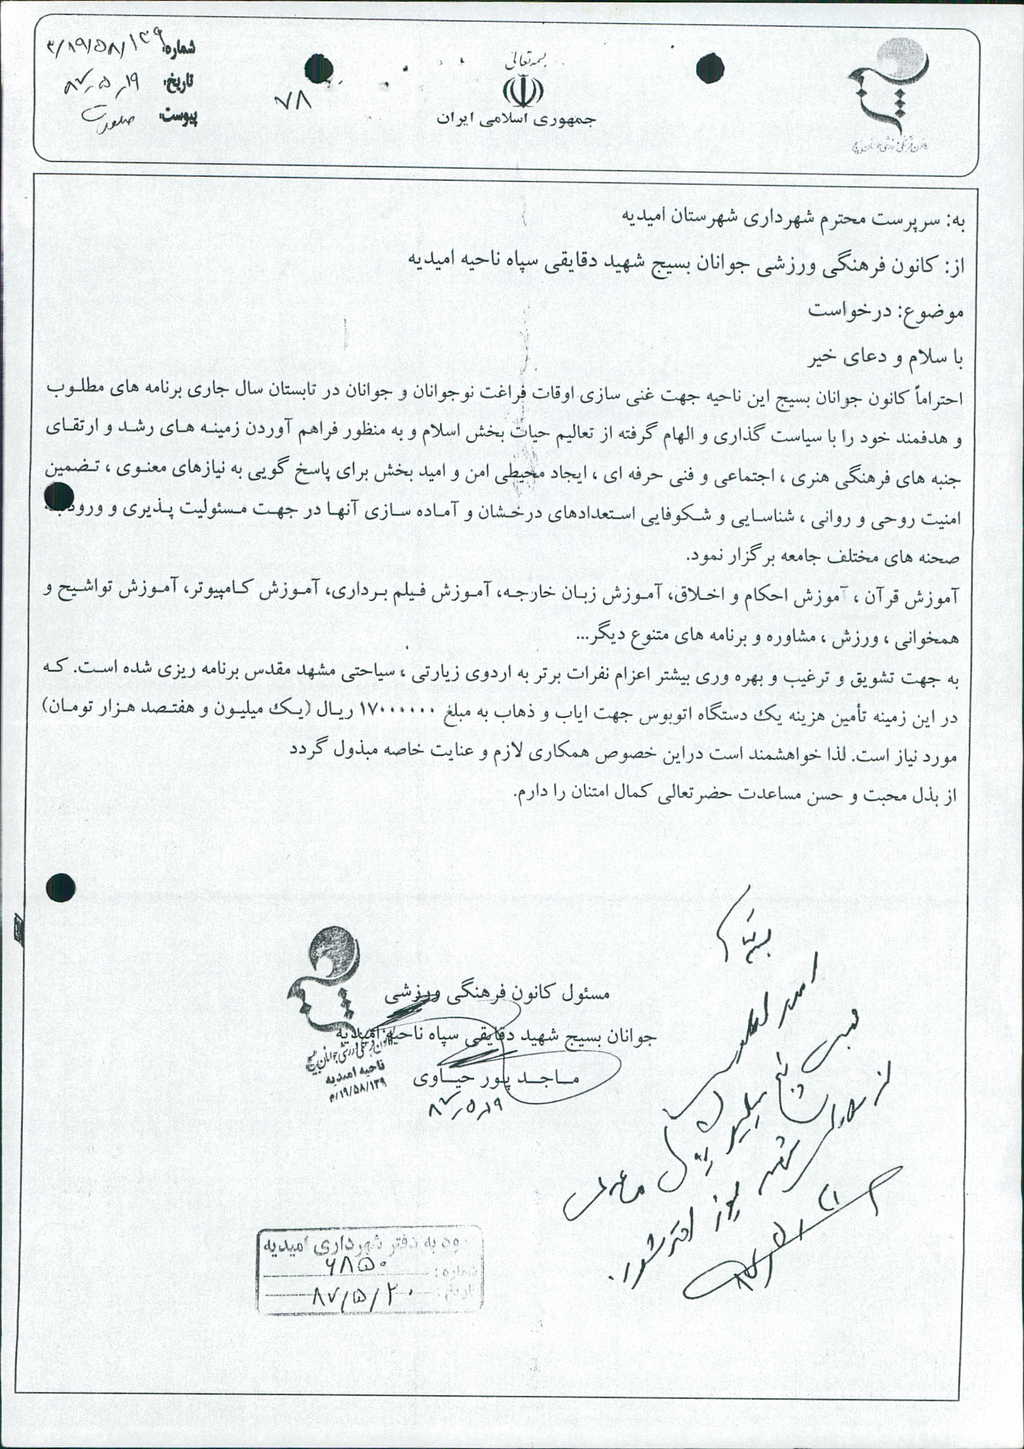 بسمه تعالی
جمهوری اسلامی ایران
شماره: ۳/۱۹/۵۸/۱۳۹
تاریخ: ۸۷-۵-۱۹
پیوست:
۷۸
به: سرپرست محترم شهرداری شهرستان امیدیه
از: کانون فرهنگی ورزشی جوانان بسیج شهید دقایقی سپاه ناحیه امیدیه
موضوع: درخواست
با سلام و دعای خیر
احتراماً کانون جوانان بسیج این ناحیه جهت غنی سازی اوقات فراغت نوجوانان و جوانان در تابستان سال جاری برنامه های مطلوب
و هدفمند خود را با سیاست گذاری و الهام گرفته از تعالیم حیات بخش اسلام و به منظور فراهم آوردن زمینه های رشد و ارتقای
جنبه های فرهنگی هنری ، اجتماعی و فنی حرفه ای ، ایجاد محیطی امن و امید بخش برای پاسخ گویی به نیازهای معنوی ، تضمین
امنیت روحی و روانی ، شناسایی و شکوفایی استعدادهای درخشان و آماده سازی آنها در جهت مسئولیت پذیری و ورود به
صحنه های مختلف جامعه برگزار نمود.
آموزش قرآن ، آموزش احکام و اخلاق، آموزش زبان خارجه، آموزش فیلم برداری، آموزش کامپیوتر، آموزش تواشیح و
همخوانی ، ورزش ، مشاوره و برنامه های متنوع دیگر...
به جهت تشویق و ترغیب و بهره وری بیشتر اعزام نفرات برتر به اردوی زیارتی ، سیاحتی مشهد مقدس برنامه ریزی شده است. که
در این زمینه تأمین هزینه یک دستگاه اتوبوس جهت ایاب و ذهاب به مبلغ ۱۷۰۰۰۰۰۰ ریال (یک میلیون و هفتصد هزار تومان)
مورد نیاز است. لذا خواهشمند است دراین خصوص همکاری لازم و عنایت خاصه مبذول گردد
از بذل محبت و حسن مساعدت حضرتعالی کمال امتنان را دارم.
مسئول کانون فرهنگی ورزشی
جوانان بسیج شهید دقایقی سپاه ناحیه امیدیه
ماجد پور حیاوی
۸۷-۵-۱۹
کانون فرهنگی ورزشی جوانان بسیج
ناحیه امیدیه
۳/۱۹/۵۸/۱۳۹
امور
مبلغ پنج میلیون ریال
۸۷/۵/۲۱
ورود به دفتر شهرداری امیدیه
شماره: ۶۸۵۰
تاریخ: ۸۷/۵/۲۰